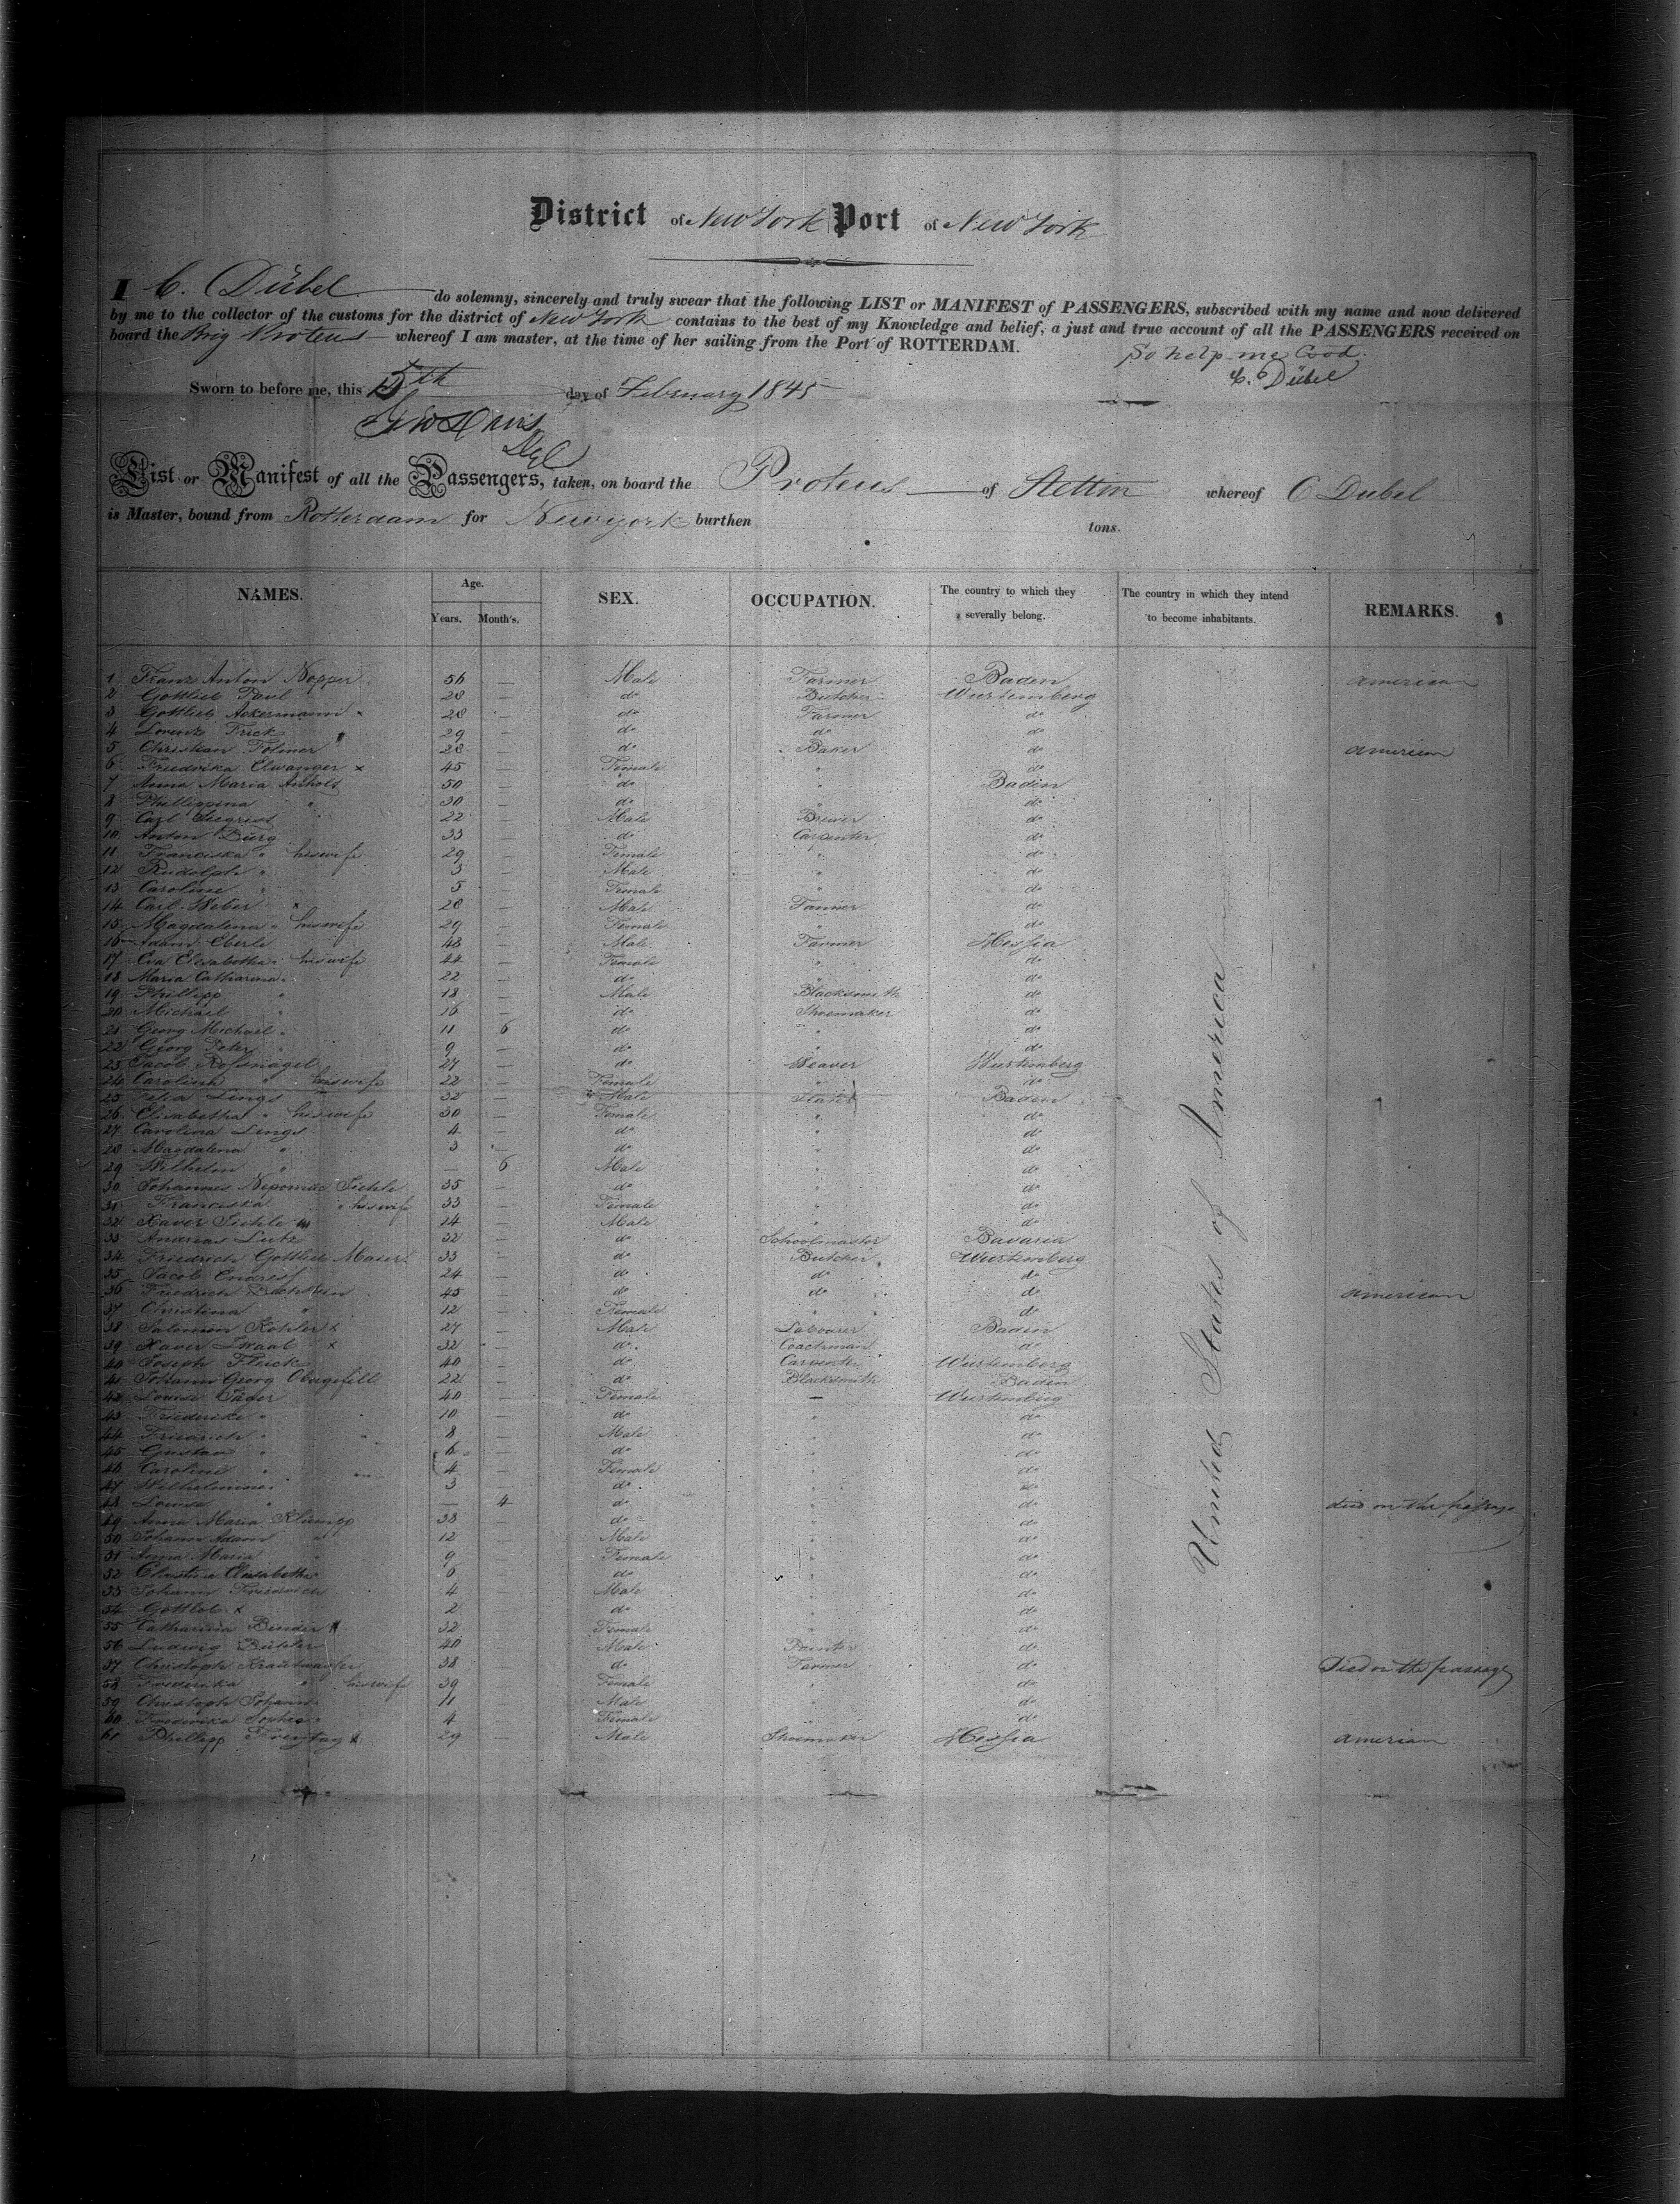 District of New York Port of New York
I C. Dübel do solemny, sincerely and truly swear that the following LIST or MANIFEST of PASSENGERS, subscribed with my name and now delivered
by me to the collector of the customs for the district of New York contains to the best of my Knowledge and belief, a just and true account of all the PASSENGERS received on
board the Brig Proteus whereof I am master, at the time of her sailing from the Port of ROTTERDAM.
So help me God.
C. Dübel
Sworn to before me, this 5th day of February 1845
List or Manifest of all the Passengers, taken, on board the Proteus of Stettin whereof C Dubel
is Master, bound from Rotterdam for New york burthen tons.
NAMES. Age. Years. Month's. SEX. OCCUPATION. The country to which they severally belong. The country in which they intend to become inhabitants. REMARKS.
United States of America
1 Franz Anton Nopper 56 — Male Farmer Baden american
2 Gottlieb Paul 28 — do Butcher Wurtemberg
3 Gottlieb Ackermann 28 — do Farmer do
4 Lorenz Frick 29 — do do do
5 Christian Folmer 28 — do Baker do american
6 Friedrika Elwanger x 45 — Female " do
7 Anna Maria 50 — do " Baden
8 Phillippina " 30 — do " do
9 Carl Seegrist 22 — Male Brewer do
10 Anton Burg 33 — do Carpenter do
11 Franciska " his wife 29 — Female " do
12 Rudolph " 3 — Male " do
13 Caroline " 5 — Female " do
14 Carl Weber x 28 — Male do
15 Magdalena " his wife 29 — Female " do
16 Adam Eberle 48 — Male Farmer Hessia
17 Eva Elisabetha " his wife 44 — Female " do
18 Maria Catharina " 22 — do " do
19 Phillipp " 18 — Male Blacksmith do
20 Michael " 16 — do Shoemaker do
21 Georg Michael " 11 6 do " do
22 Georg Peter " 9 — do " do
23 Jacob Rossnagel 27 — do Weaver Wurtemberg
24 Carolina " his wife 22 — Female " do
25 Lings 32 — Male Baden
26 Elisabetha " his wife 30 — Female " do
27 Carolina Lings 4 — do " do
28 Magdalena " 3 — do " do
29 Wilhelm " — 6 Male " do
30 Johannes Nepomuc Siehle 35 — do " do
31 Franciska " his wife 33 — Female " do
32 Xaver Siehle 14 — Male " do
33 Andreas Lutz 32 — do Schoolmaster Bavaria
34 Friedrich Gottlieb Maier 33 — do Butcher Wurtemberg
35 Jacob Endress 24 — do do do
36 Friedrich 45 — do do do american
37 Christina " 12 — Female " do
38 Salomon Kohler x 27 — Male Labourer Baden
39 Xaver x 32 — do Coachman do
40 Joseph Fluck 40 — do Carpenter Wurtemberg
41 Johann Georg 22 — do Blacksmith Baden
42 Louise 40 — Female — Wurtemberg
43 Friederike " 10 — do " do
44 Friedrich " 8 — Male " do
45 Gustav " 6 — do " do
46 Caroline " 4 — Female " do
47 Wilhelmine " 3 — do " do
48 Louise " — 4 do " do died on the passage
49 Anna Maria Klumpp 38 — do " do
50 Johann Adam " 12 — Male " do
51 Anna Maria " 9 — Female " do
52 Christine Elisabetha 6 — do " do
53 Johann Friedrich 4 — Male " do
54 Gottlob x 2 — do " do
55 Catharina Binder 32 — Female " do
56 Ludwig Bühler 40 — Male do
57 Christoph 38 — do Farmer do Died on the passage
58 Frederika " his wife 39 — Female " do
59 Christoph Johann 11 — Male " do
60 Frederika Sophia 4 — Female " do
61 Phillipp Freytag x 29 — Male Shoemaker Hessia american